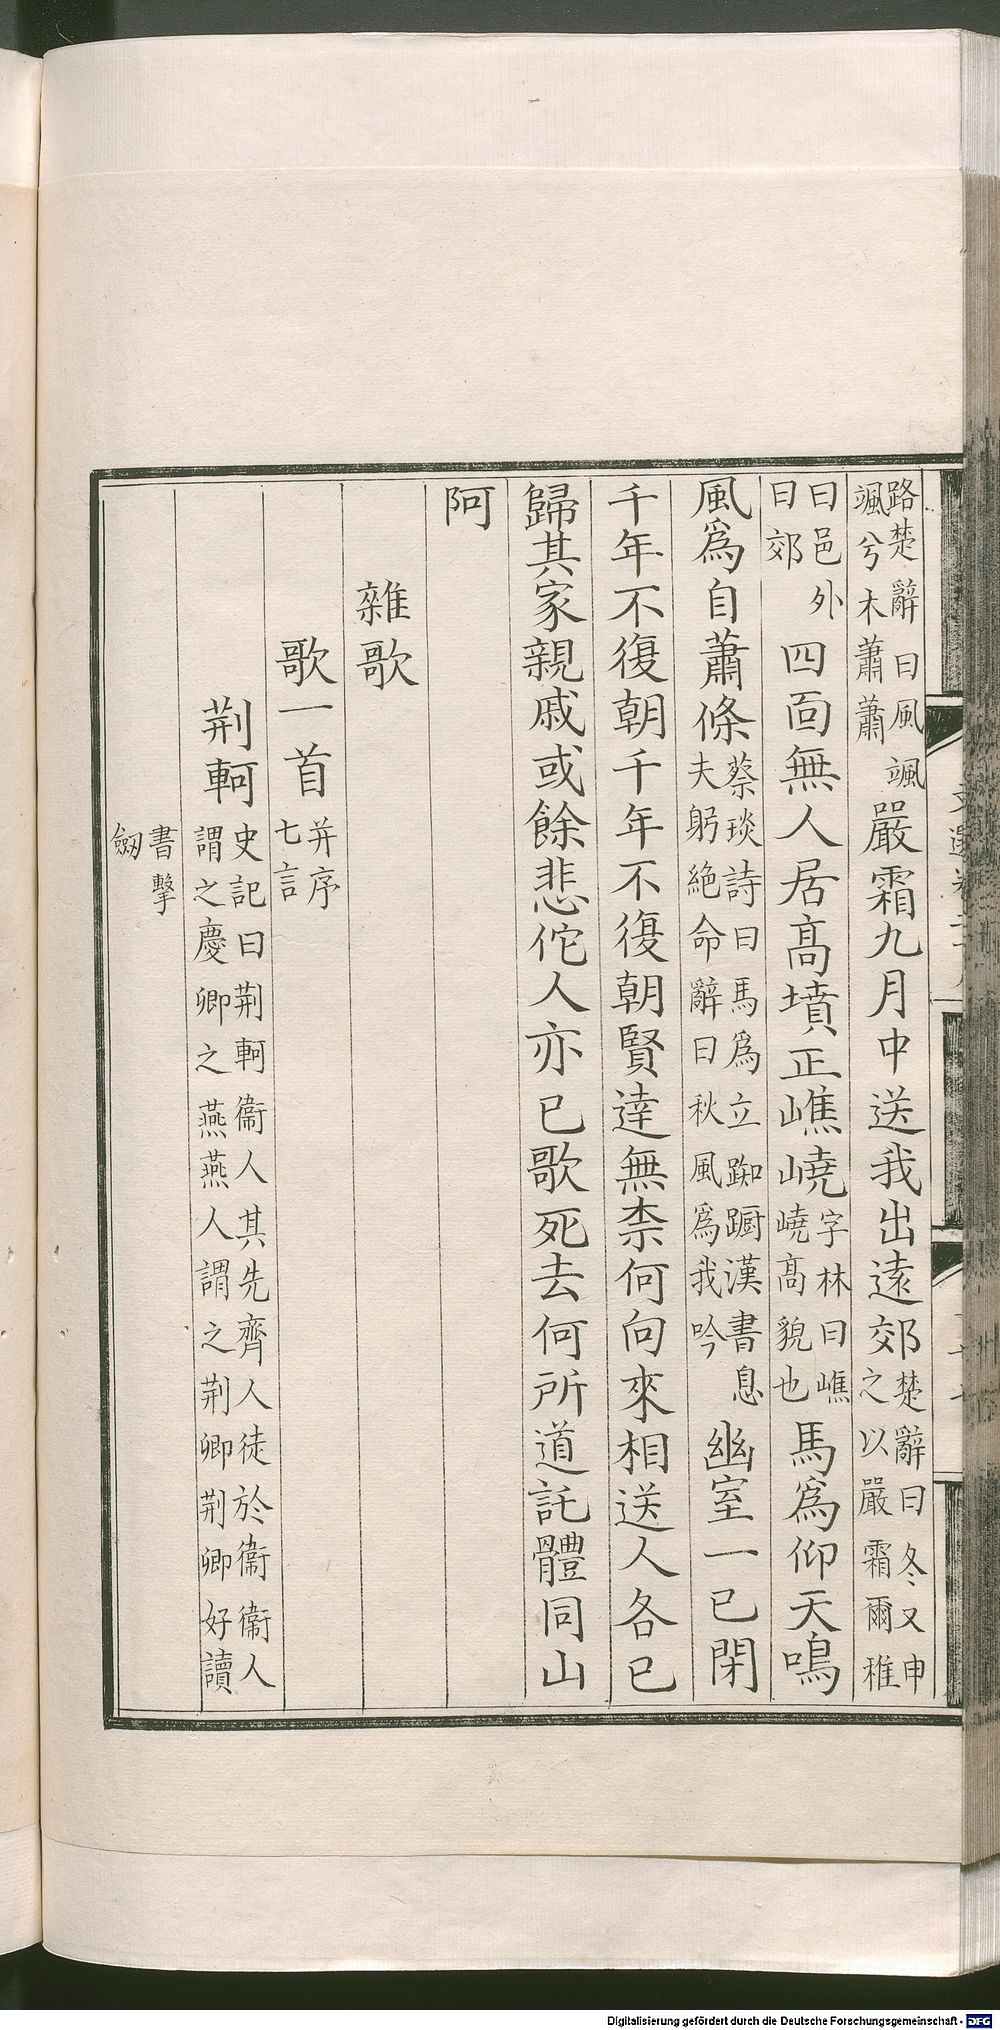 路楚辭曰風颯颯兮木蕭蕭嚴霜九月中送我出遠郊楚辭曰冬又申之以嚴霜爾雅
曰邑外曰郊四面無人居高墳正嶕嶢字林曰嶕嶢高貌也馬爲仰天鳴
風爲自蕭條蔡琰詩曰馬爲立踟躕漢書息夫躬絶命辭曰秋風爲我吟幽室一已閉
千年不復朝千年不復朝賢達無柰何向來相送人各已
歸其家親戚或餘悲佗人亦已歌死去何所道託體同山
阿
雜歌
歌一首并序七言
荆軻史記曰荆軻衞人其先齊人徒於衞衞人謂之慶卿之燕燕人謂之荆卿荆卿好讀
書擊劒
Digitalisierung gefördert durch die Deutsche Forschungsgemeinschaft - DFG